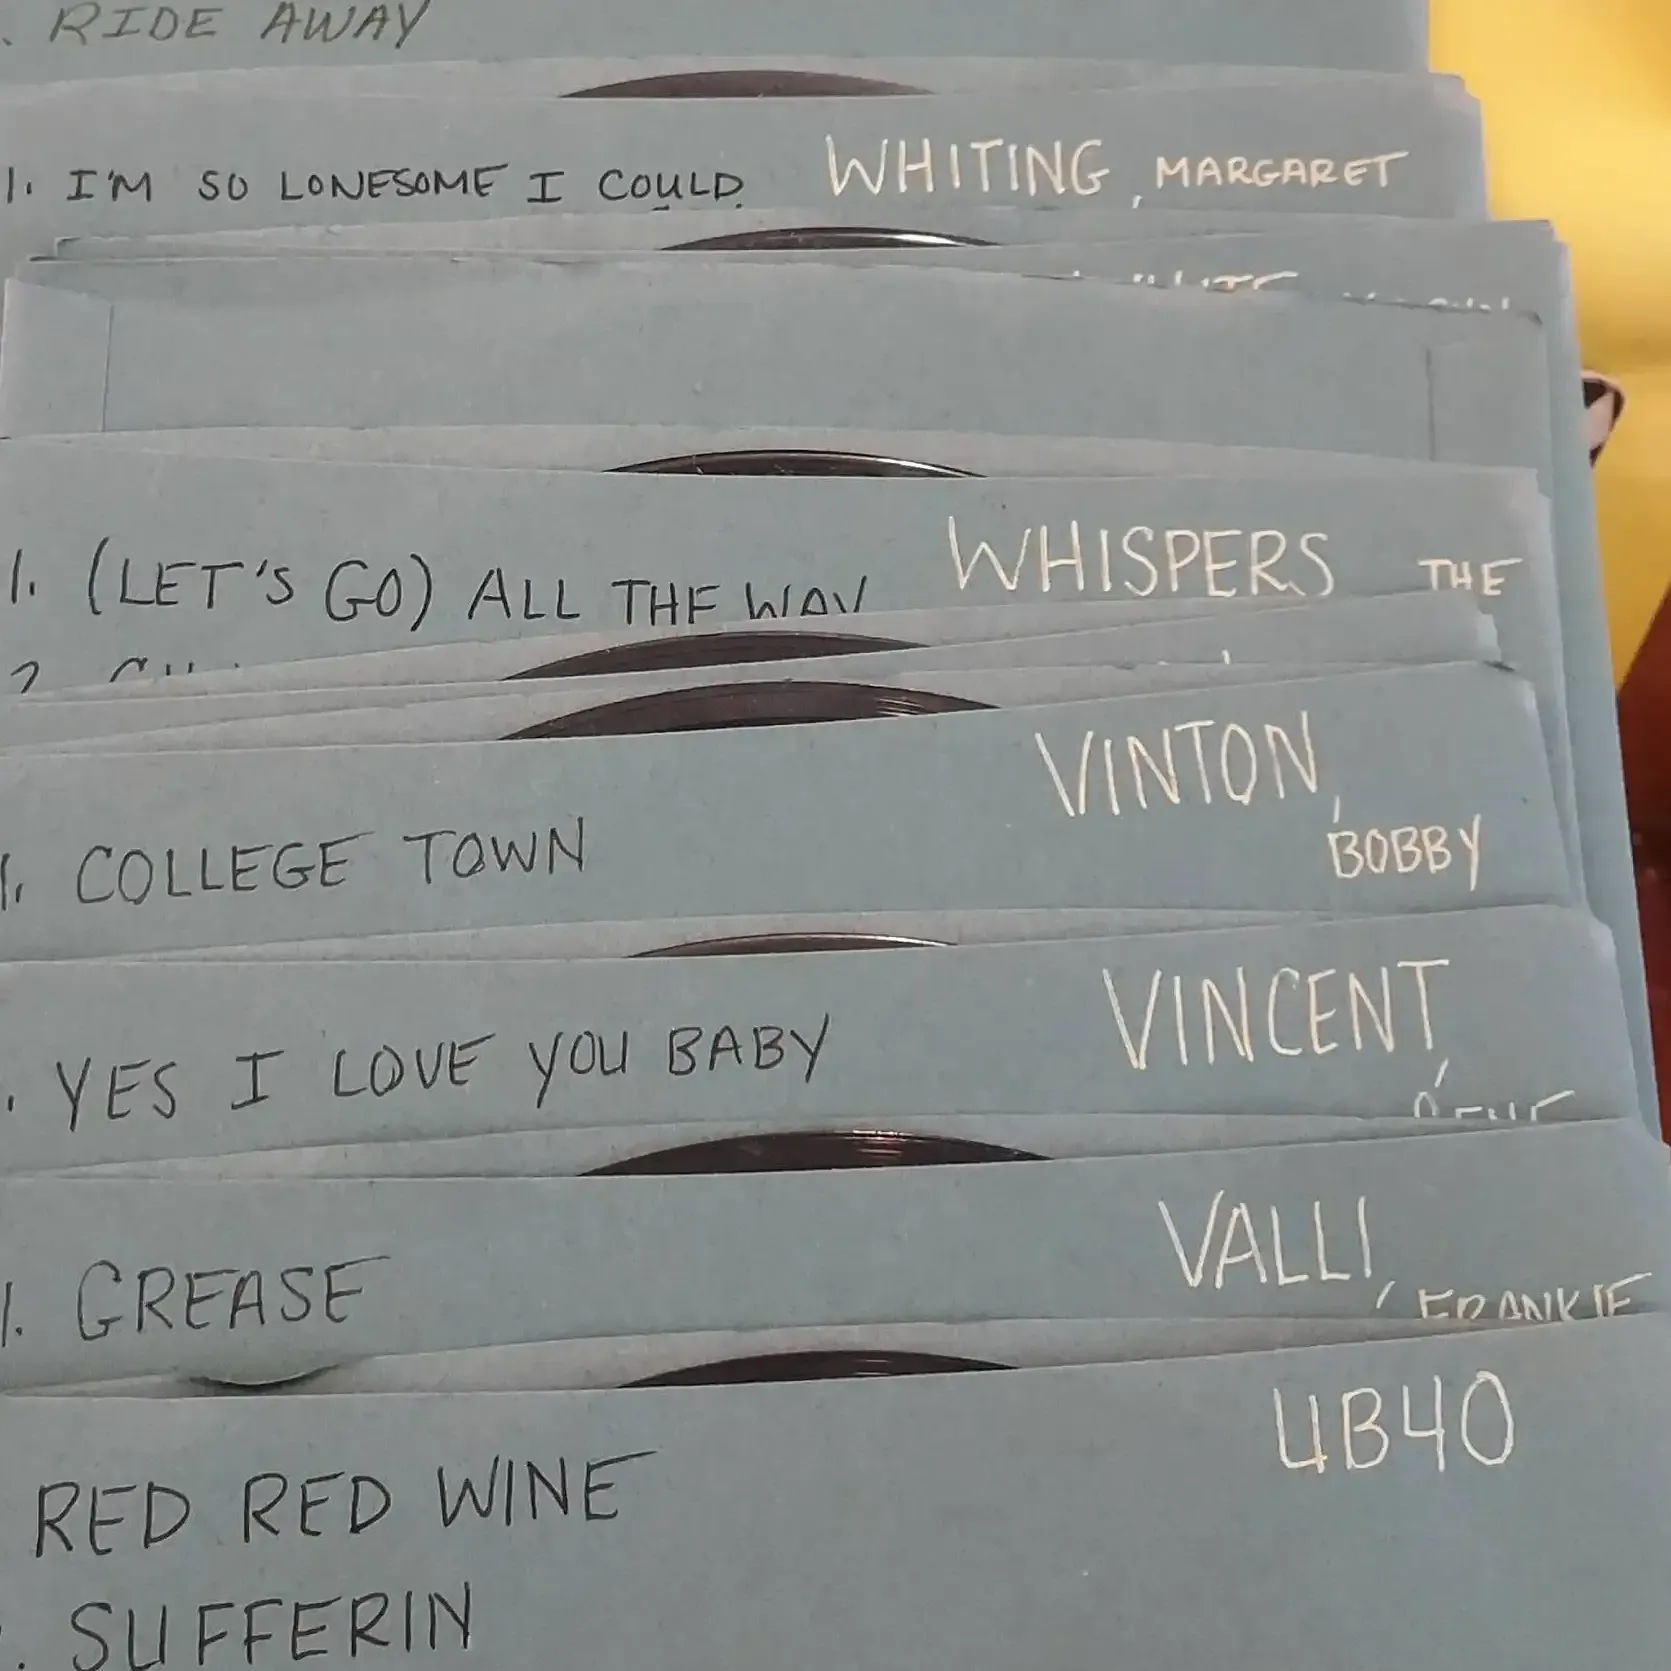 . RIDE AWAY
1. I'M SO LONESOME I COULD WHITING, MARGARET
1. (LET'S GO) ALL THE WAY WHISPERS THE
2
VINTON,
1. COLLEGE TOWN BOBBY
VINCENT,
. YES I LOVE YOU BABY
VALLI,
1. GREASE FRANKIE
UB40
RED RED WINE
. SUFFERIN